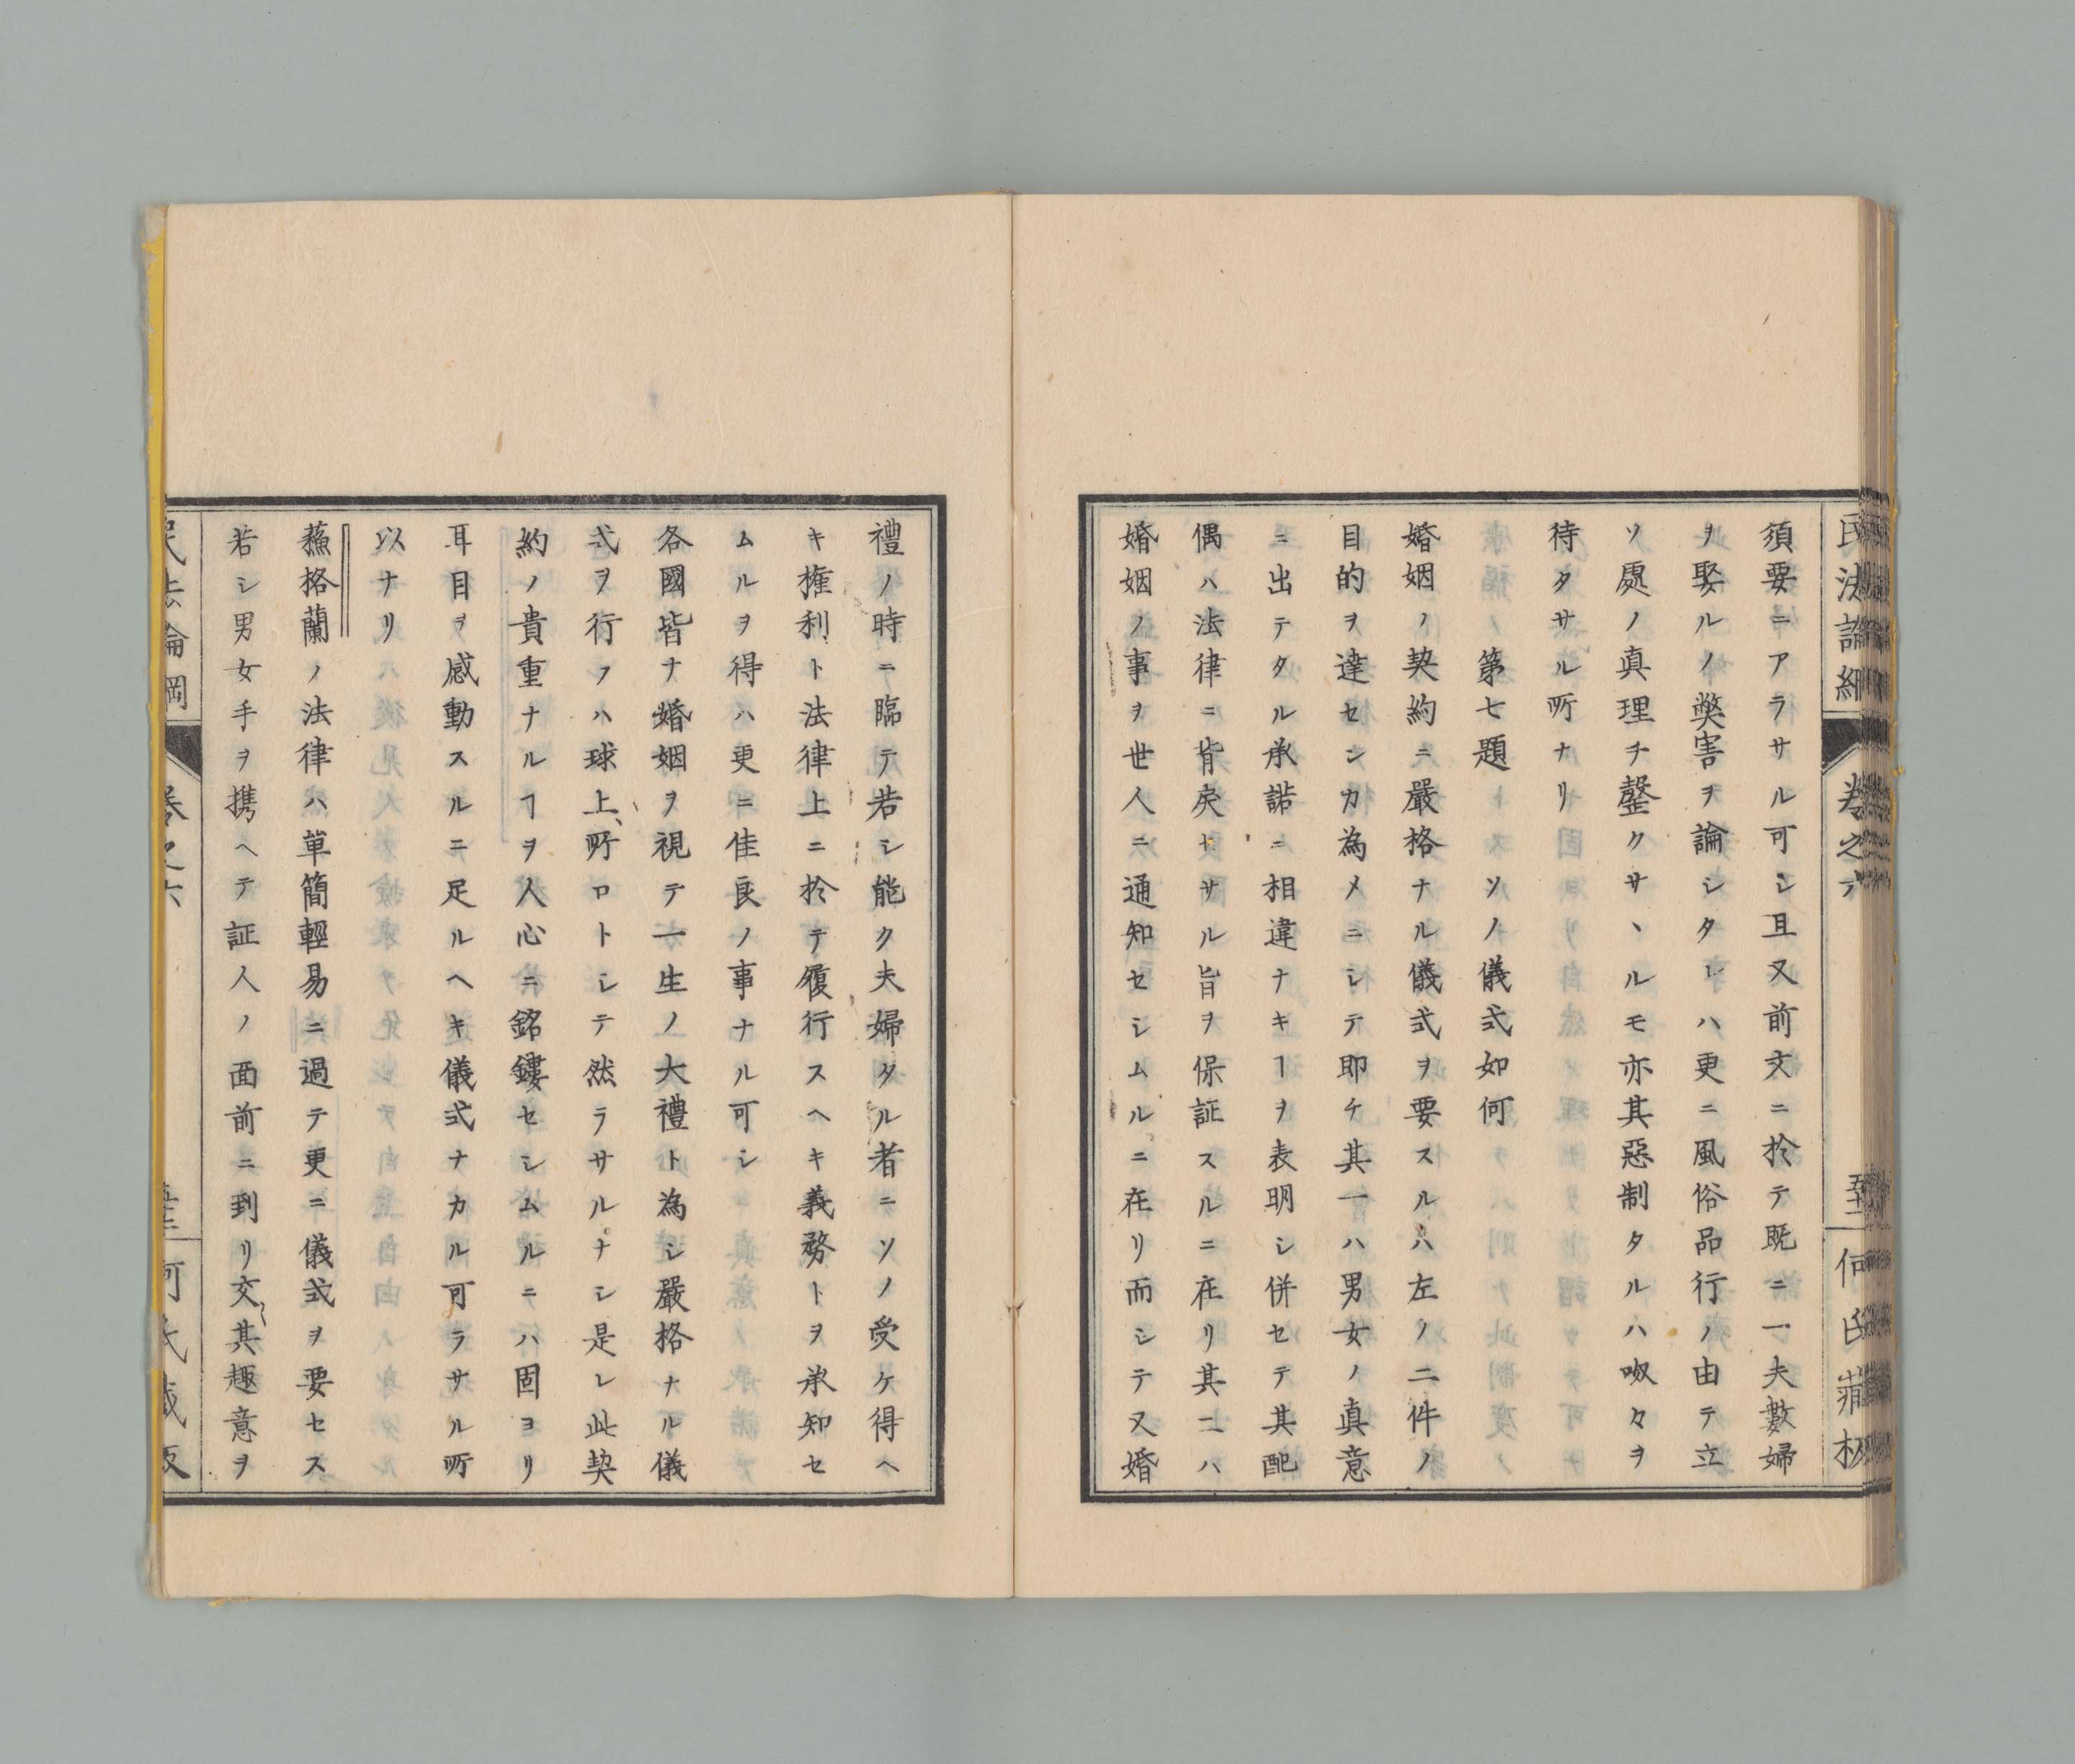 民法論綱
卷之六
何氏藏板
須要ニアラサル可シ且又前文ニ於テ既ニ一夫數婦
ヲ娶ルノ獘害ヲ論シタレハ更ニ風俗品行ノ由テ立
ソ處ノ真理チ鑿クサヽルモ亦其惡制タルハ呶々ヲ
待タサル所ナリ
第七題 ソノ儀式如何
婚姻ノ契約ニ嚴格ナル儀式ヲ要スルハ左ノ二件ノ
目的ヲ達センカ為メニシテ即チ其一ハ男女ノ真意
ニ出テタル承諾ニ相違ナキヿヲ表明シ併セテ其配
偶ハ法律ニ背戾セサル旨ヲ保証スルニ在リ其二ハ
婚姻ノ事ヲ世人ニ通知セシムルニ在リ而シテ又婚
禮ノ時ニ臨テ若シ能ク夫婦タル者ニソノ受ケ得ヘ
キ權利ト法律上ニ於テ履行スヘキ義務トヲ承知セ
ムルヲ得ハ更ニ佳良ノ事ナル可シ
各國皆ナ婚姻ヲ視テ一生ノ大禮ト為シ嚴格ナル儀
式ヲ行フハ球上、所ロトシテ然ラサルナシ是レ此契
約ノ貴重ナルヿヲ人心ニ銘鏤セシムルニハ固ヨリ
耳目ヲ感動スルニ足ルヘキ儀式ナカル可ラサル所
以ナリ
蘓格蘭ノ法律ハ単簡輕易ニ過テ更ニ儀式ヲ要セス
若シ男女手ヲ携ヘテ証人ノ面前ニ到リ交〻其趣意ヲ
民法論綱
卷之六
何氏藏板